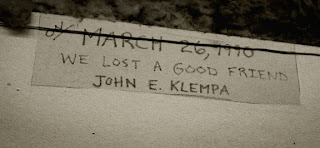 ON MARCH 26, 1990
WE LOST A GOOD FRIEND
JOHN E. KLEMPA